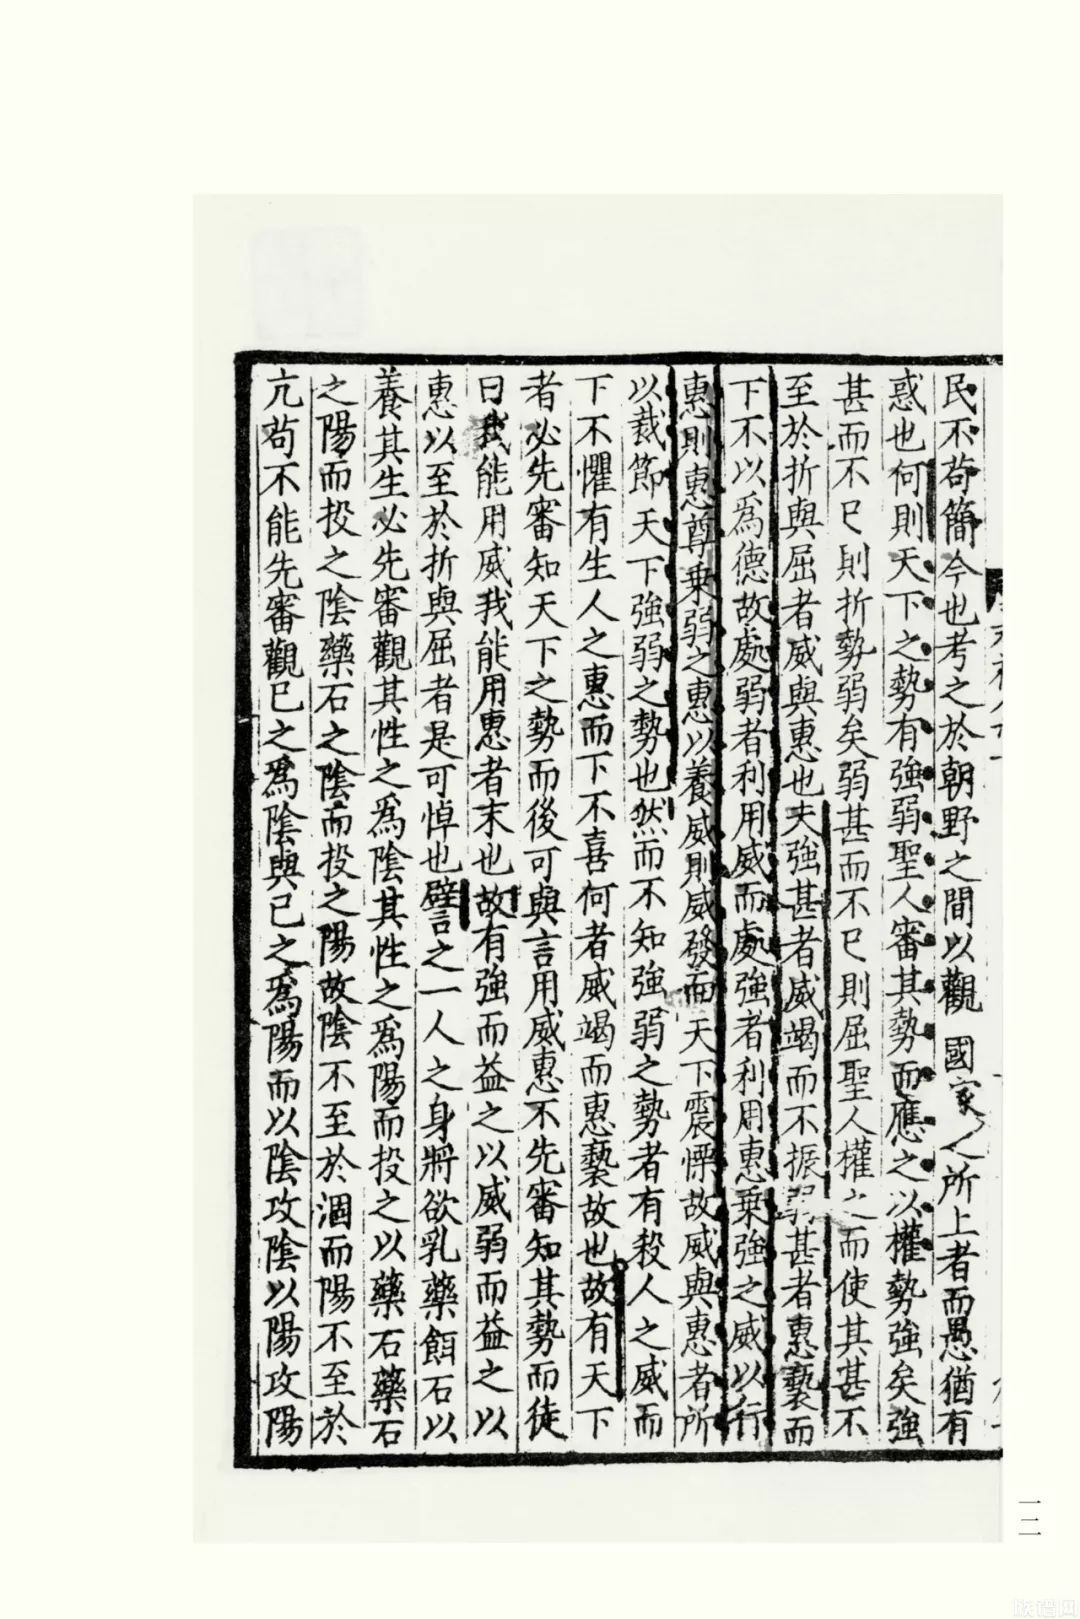 民不苟簡今也考之於朝野之間以觀 國家之所上者而愚猶有
惑也何則天下之勢有強弱聖人審其勢而應之以權勢強矣強
甚而不已則折勢弱矣弱甚而不已則屈聖人權之而使其甚不
至於折與屈者威與惠也夫強甚者威竭而不振弱甚者惠褻而
下不以為德故處弱者利用威而處強者利用惠乗強之威以行
惠則惠尊乗弱之惠以養威則威發而天下震慄故威與惠者所
以裁節天下強弱之勢也然而不知強弱之勢者有殺人之威而
下不懼有生人之惠而下不喜何者威竭而惠褻故也故有天下
者必先審知天下之勢而後可與言用威惠不先審知其勢而徒
曰我能用威我能用惠者末也故有強而益之以威弱而益之以
惠以至於折與屈者是可悼也譬之一人之身將欲乳藥餌石以
養其生必先審觀其性之為陰其性之為陽而投之以藥石藥石
之陽而投之陰藥石之陰而投之陽故陰不至於涸而陽不至於
亢苟不能先審觀已之為陰與已之為陽而以陰攻陰以陽攻陽
一二
族谱网